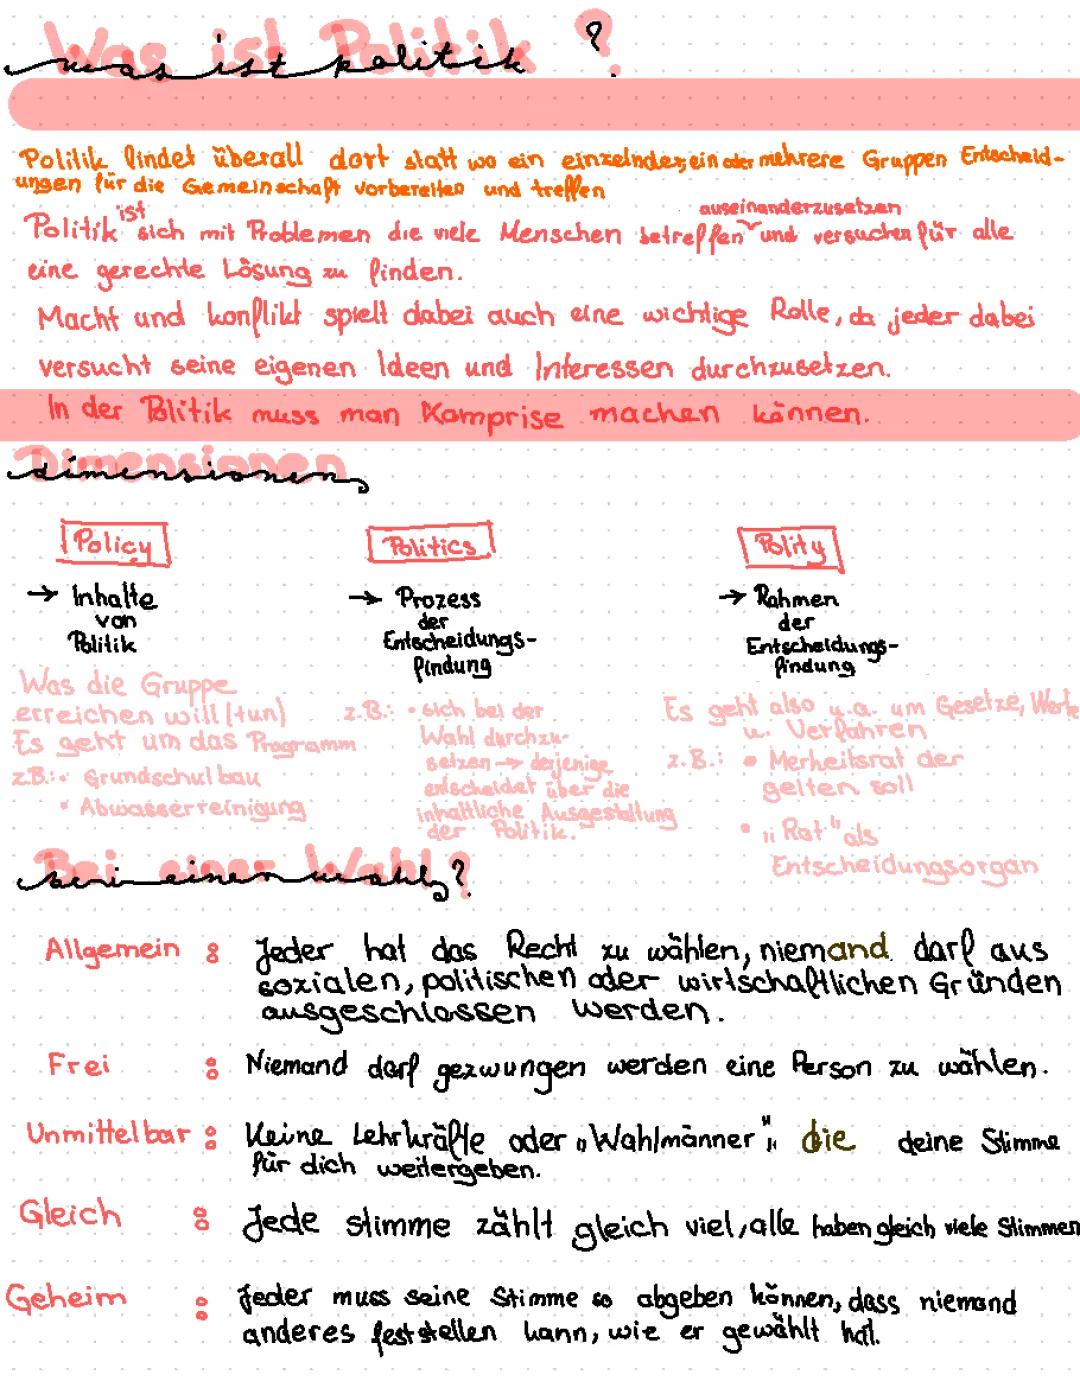 Was ist Politik ?
Politik findet überall dort statt wo ein einzelnder, ein oder mehrere Gruppen Entscheid-
ungen für die Gemeinschaft vorbereiten und treffen
ist auseinanderzusetzen
Politik sich mit Problemen die viele Menschen betreffen und versuchen für alle
eine gerechte Lösung zu finden.
Macht und konflikt spielt dabei auch eine wichtige Rolle, da jeder dabei
versucht seine eigenen Ideen und Interessen durchzusetzen.
In der Politik muss man Komprise machen können.
Dimensionen
Policy
→ Inhalte
von
Politik
Was die Gruppe
erreichen will (tun)
Es geht um das Programm
z.B.: • Grundschulbau
• Abwasserreinigung
Politics
→ Prozess
der
Entscheidungs-
findung
z.B.: • sich bei der
Wahl durchzu-
setzen → derjenige
entscheidet über die
inhaltliche Ausgestaltung
der Politik.
Polity
→ Rahmen
der
Entscheidungs-
findung
Es geht also u.a. um Gesetze, Werte
u. Verfahren
z.B.: • Merheitsrat der
gelten soll
• „Rat" als
Entscheidungsorgan
Bei einer Wahl ?
Allgemein : Jeder hat das Recht zu wählen, niemand darf aus
sozialen, politischen oder wirtschaftlichen Gründen
ausgeschlossen werden.
Frei : Niemand darf gezwungen werden eine Person zu wählen.
Unmittelbar : Keine Lehrkräfte oder „Wahlmänner", die deine Stimme
für dich weitergeben.
Gleich : Jede stimme zählt gleich viel, alle haben gleich viele Stimmen
Geheim : Jeder muss seine Stimme so abgeben können, dass niemand
anderes feststellen kann, wie er gewählt hat.